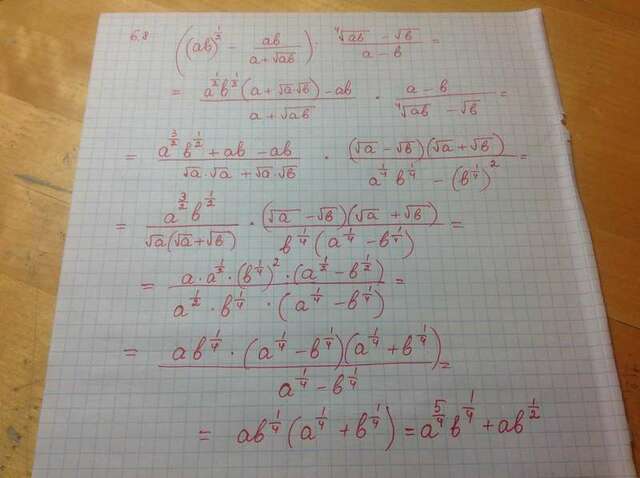 6.8 ((ab)^{\frac{1}{2}} - \frac{ab}{a+\sqrt{ab}}) : \frac{\sqrt[4]{ab} - \sqrt{b}}{a-b} =
= \frac{a^{\frac{1}{2}}b^{\frac{1}{2}}(a+\sqrt{a}\cdot\sqrt{b}) - ab}{a+\sqrt{ab}} \cdot \frac{a-b}{\sqrt[4]{ab} - \sqrt{b}} =
= \frac{a^{\frac{3}{2}}b^{\frac{1}{2}} + ab - ab}{\sqrt{a}\cdot\sqrt{a} + \sqrt{a}\cdot\sqrt{b}} \cdot \frac{(\sqrt{a}-\sqrt{b})(\sqrt{a}+\sqrt{b})}{a^{\frac{1}{4}}b^{\frac{1}{4}} - (b^{\frac{1}{4}})^2} =
= \frac{a^{\frac{3}{2}}b^{\frac{1}{2}}}{\sqrt{a}(\sqrt{a}+\sqrt{b})} \cdot \frac{(\sqrt{a}-\sqrt{b})(\sqrt{a}+\sqrt{b})}{b^{\frac{1}{4}}(a^{\frac{1}{4}} - b^{\frac{1}{4}})} =
= \frac{a \cdot a^{\frac{1}{2}} \cdot (b^{\frac{1}{4}})^2 \cdot (a^{\frac{1}{2}} - b^{\frac{1}{2}})}{a^{\frac{1}{2}} \cdot b^{\frac{1}{4}} \cdot (a^{\frac{1}{4}} - b^{\frac{1}{4}})} =
= \frac{ab^{\frac{1}{4}} \cdot (a^{\frac{1}{4}} - b^{\frac{1}{4}})(a^{\frac{1}{4}} + b^{\frac{1}{4}})}{a^{\frac{1}{4}} - b^{\frac{1}{4}}} =
= ab^{\frac{1}{4}}(a^{\frac{1}{4}} + b^{\frac{1}{4}}) = a^{\frac{5}{4}}b^{\frac{1}{4}} + ab^{\frac{1}{2}}